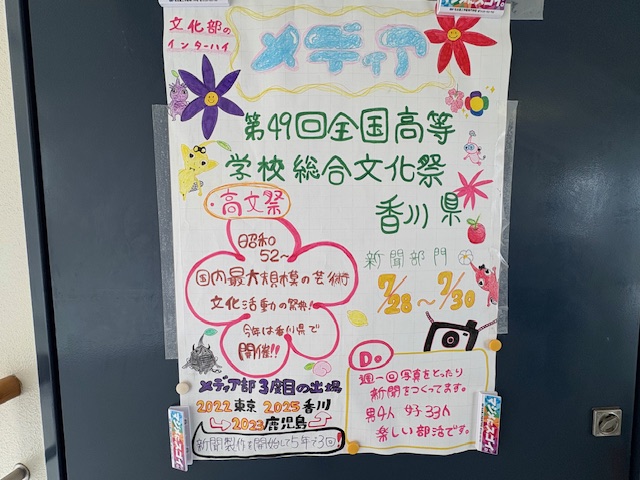 文化部の
インターハイ
メディア
第49回全国高等
学校総合文化祭
香川県
・高文祭
昭和
52〜
国内最大規模の芸術
文化活動の祭典!
今年は香川県で
開催!!
新聞部門
7/28〜7/30
メディア部 3度目の出場
2022 東京 2025 香川
2023 鹿児島
新聞製作を開始して5年で3回!
D。
週一回写真をとったり
新聞をつくってます。
男4人 女子33人
楽しい部活です。